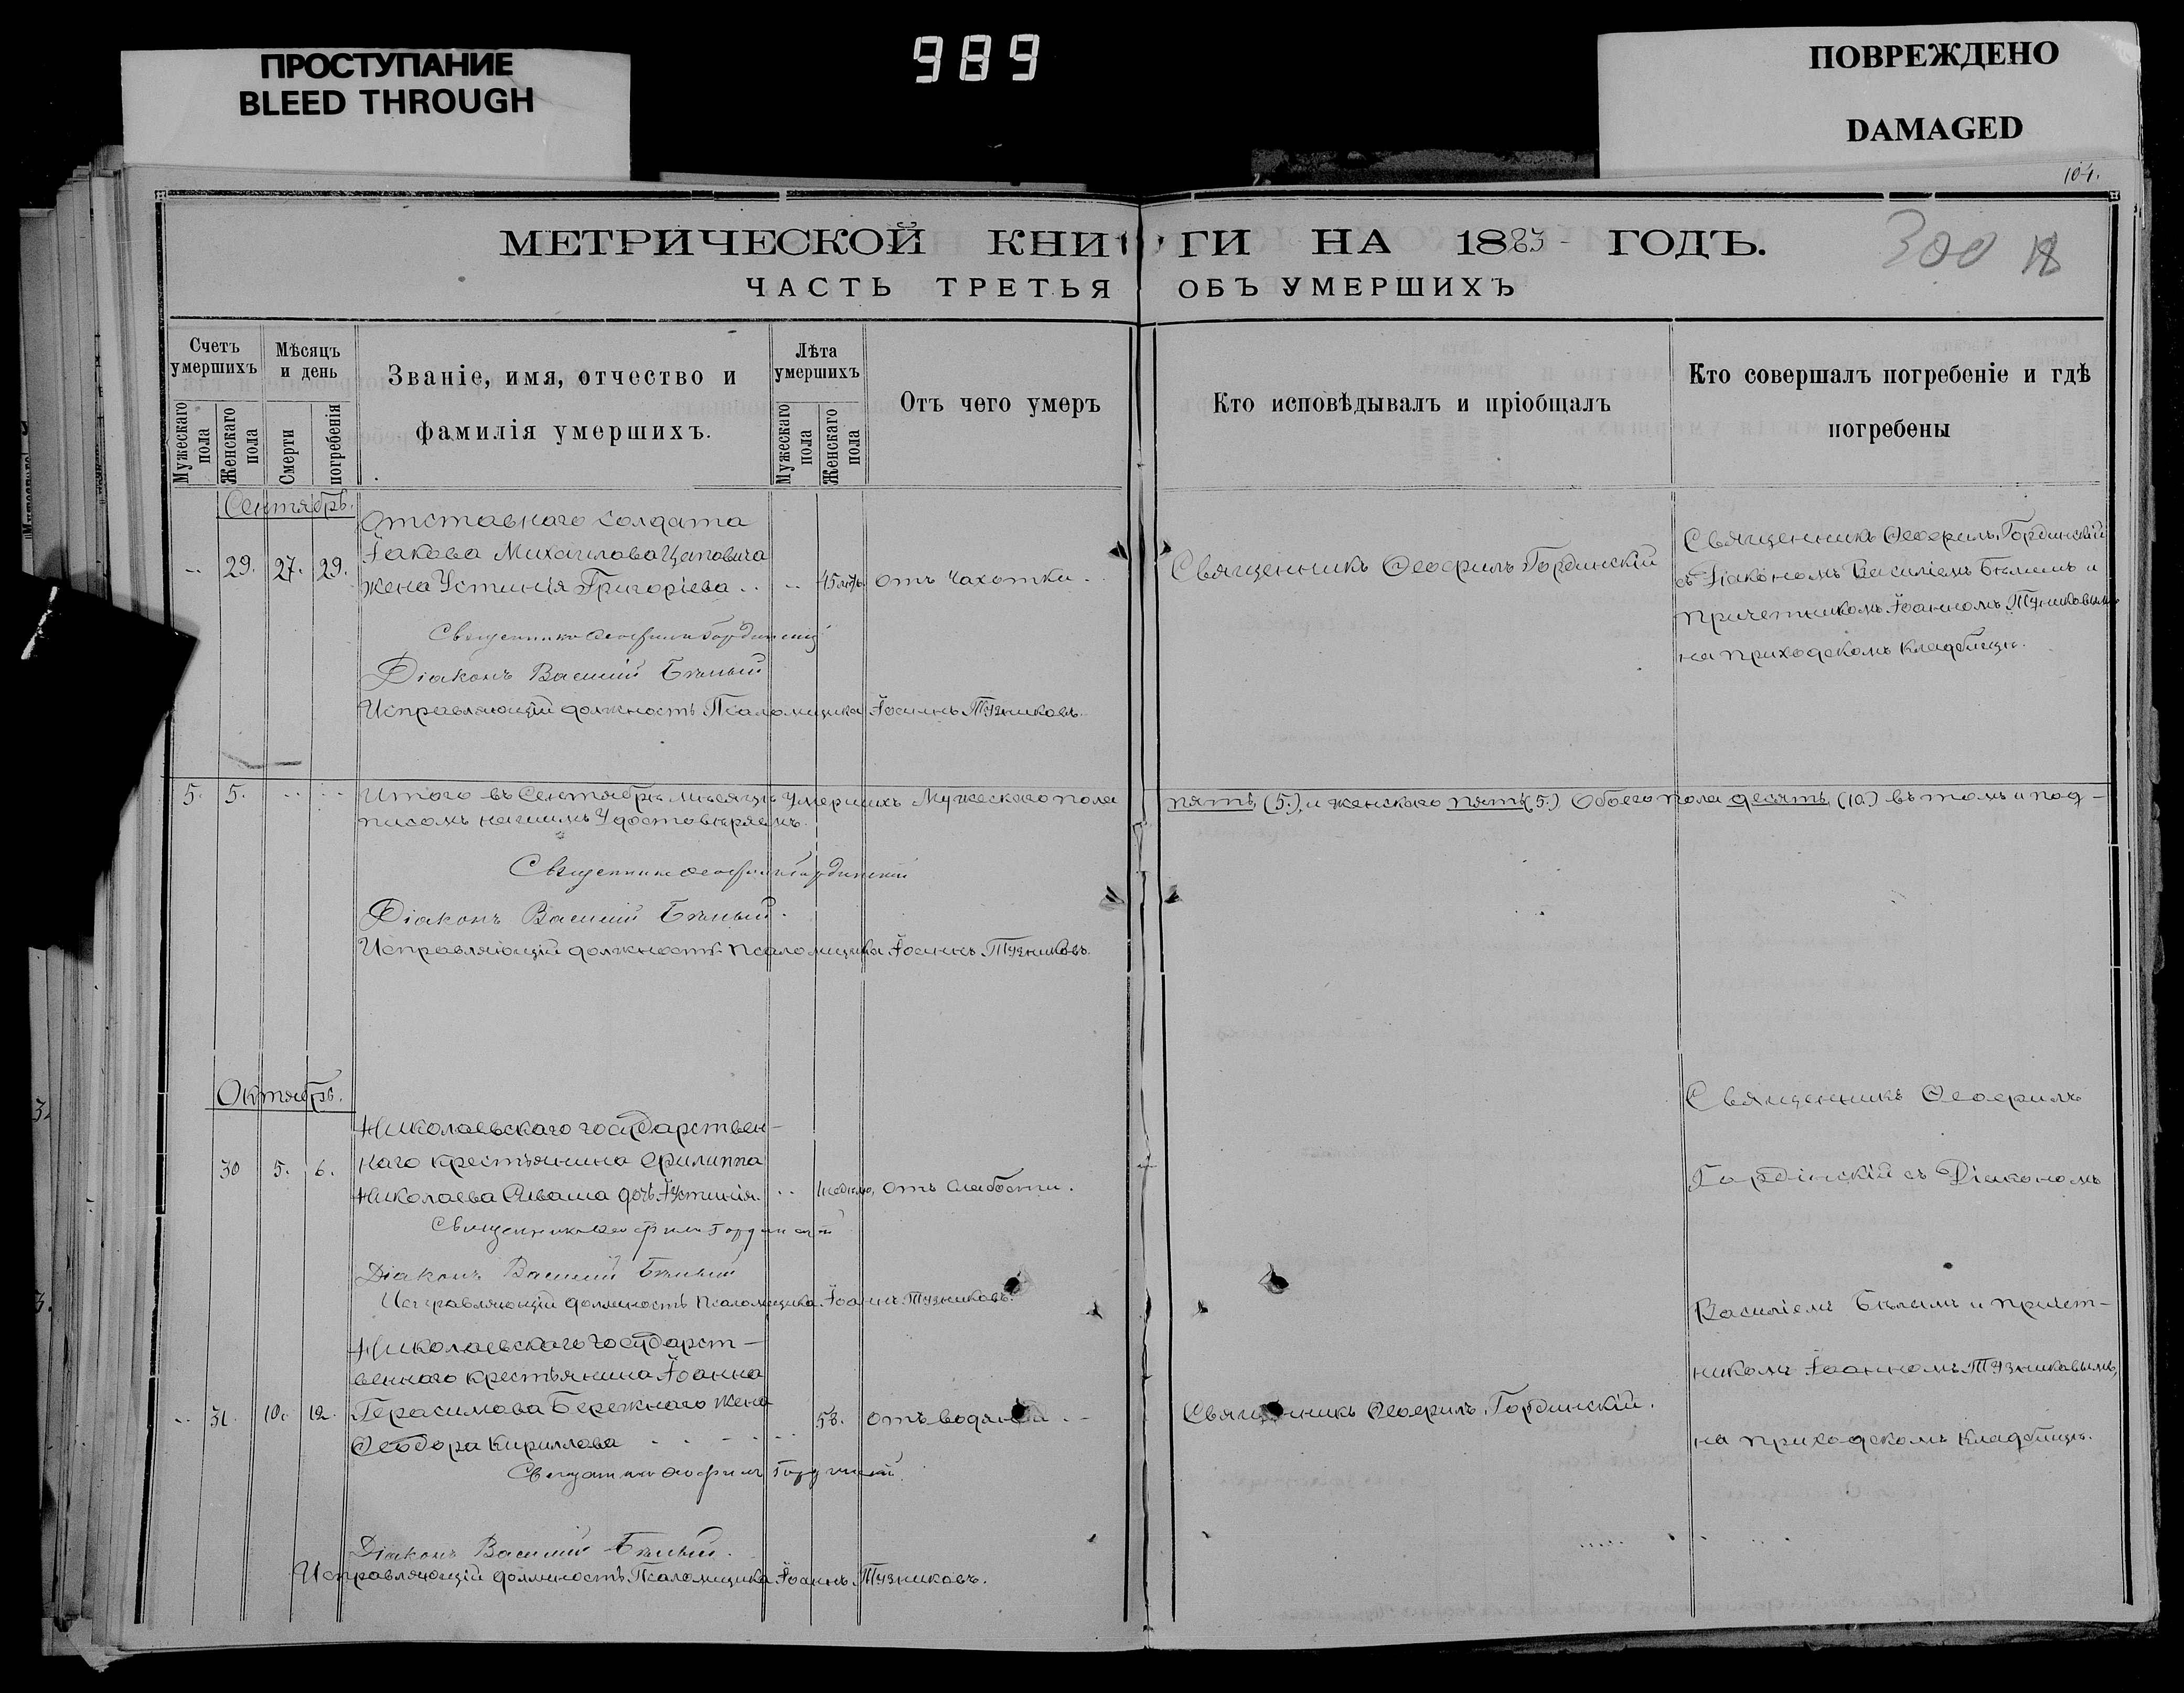 ПРОСТУПАНИЕ
BLEED THROUGH
989
ПОВРЕЖДЕНО
DAMAGED
104.
МЕТРИЧЕСКОЙ КНИГИ НА 1883 ГОДЪ.
300
ЧАСТЬ ТРЕТЬЯ ОБЪ УМЕРШИХЪ
Счетъ умершихъ
Мужескаго пола
Женскаго пола
Мѣсяцъ и день
Смерти
погребенія
Званіе, имя, отчество и
фамилія умершихъ.
Лѣта умершихъ
Мужескаго пола
Женскаго пола
Отъ чего умеръ
Кто исповѣдывалъ и пріобщалъ
Кто совершалъ погребеніе и гдѣ
погребены
Сентябрь.
Отставнаго солдата
Іакова Михаилова Цаповича
29. 27. 29. жена Устинія Григоріева .. 45 лѣтъ отъ чахотки.
Священникъ Ѳеофилъ Гординскій
Священникъ Ѳеофилъ Гординскій
съ Діакономъ Василіемъ Бѣлымъ и
причетникомъ Іоанномъ Тузниковымъ
на приходскомъ кладбищѣ.
Священникъ Ѳеофилъ Гординскій
Діаконъ Василій Бѣлый
Исправляющій должность Псаломщика Іоаннъ Тузниковъ.
5. 5. Итого въ Сентябрѣ мѣсяцѣ умершихъ Мужескаго пола пять (5.), и женскаго пять (5.) Обоего пола десять (10.) въ томъ и под-
писомъ нашимъ Удостовѣряемъ.
Священникъ Ѳеофилъ Гординскій
Діаконъ Василій Бѣлый.
Исправляющій должность псаломщика Іоаннъ Тузниковъ.
Октябрь.
Николаевскаго государствен-
наго крестьянина Филиппа
30 5. 6. Николаева Иваша дочь Іустинія. .. 1 недѣлю, отъ слабости.
Священникъ Ѳеофилъ Гординскій
Діаконъ Василій Бѣлый
Исправляющій должность псаломщика Іоаннъ Тузниковъ.
Николаевскаго государст-
веннаго крестьянина Іоанна
31. 10. 12. Герасимова Бережнаго жена 58. отъ водянки.
Ѳеодора Кириллова
Священникъ Ѳеофилъ Гординскій.
Священникъ Ѳеофилъ
Гордінскій съ Діакономъ
Василіемъ Бѣлымъ и причет-
никомъ Іоанномъ Тузниковымъ,
на приходскомъ кладбищѣ.
Священникъ Ѳеофилъ Гординскій.
Діаконъ Василій Бѣлый.
Исправляющій должность Псаломщика Іоаннъ Тузниковъ.